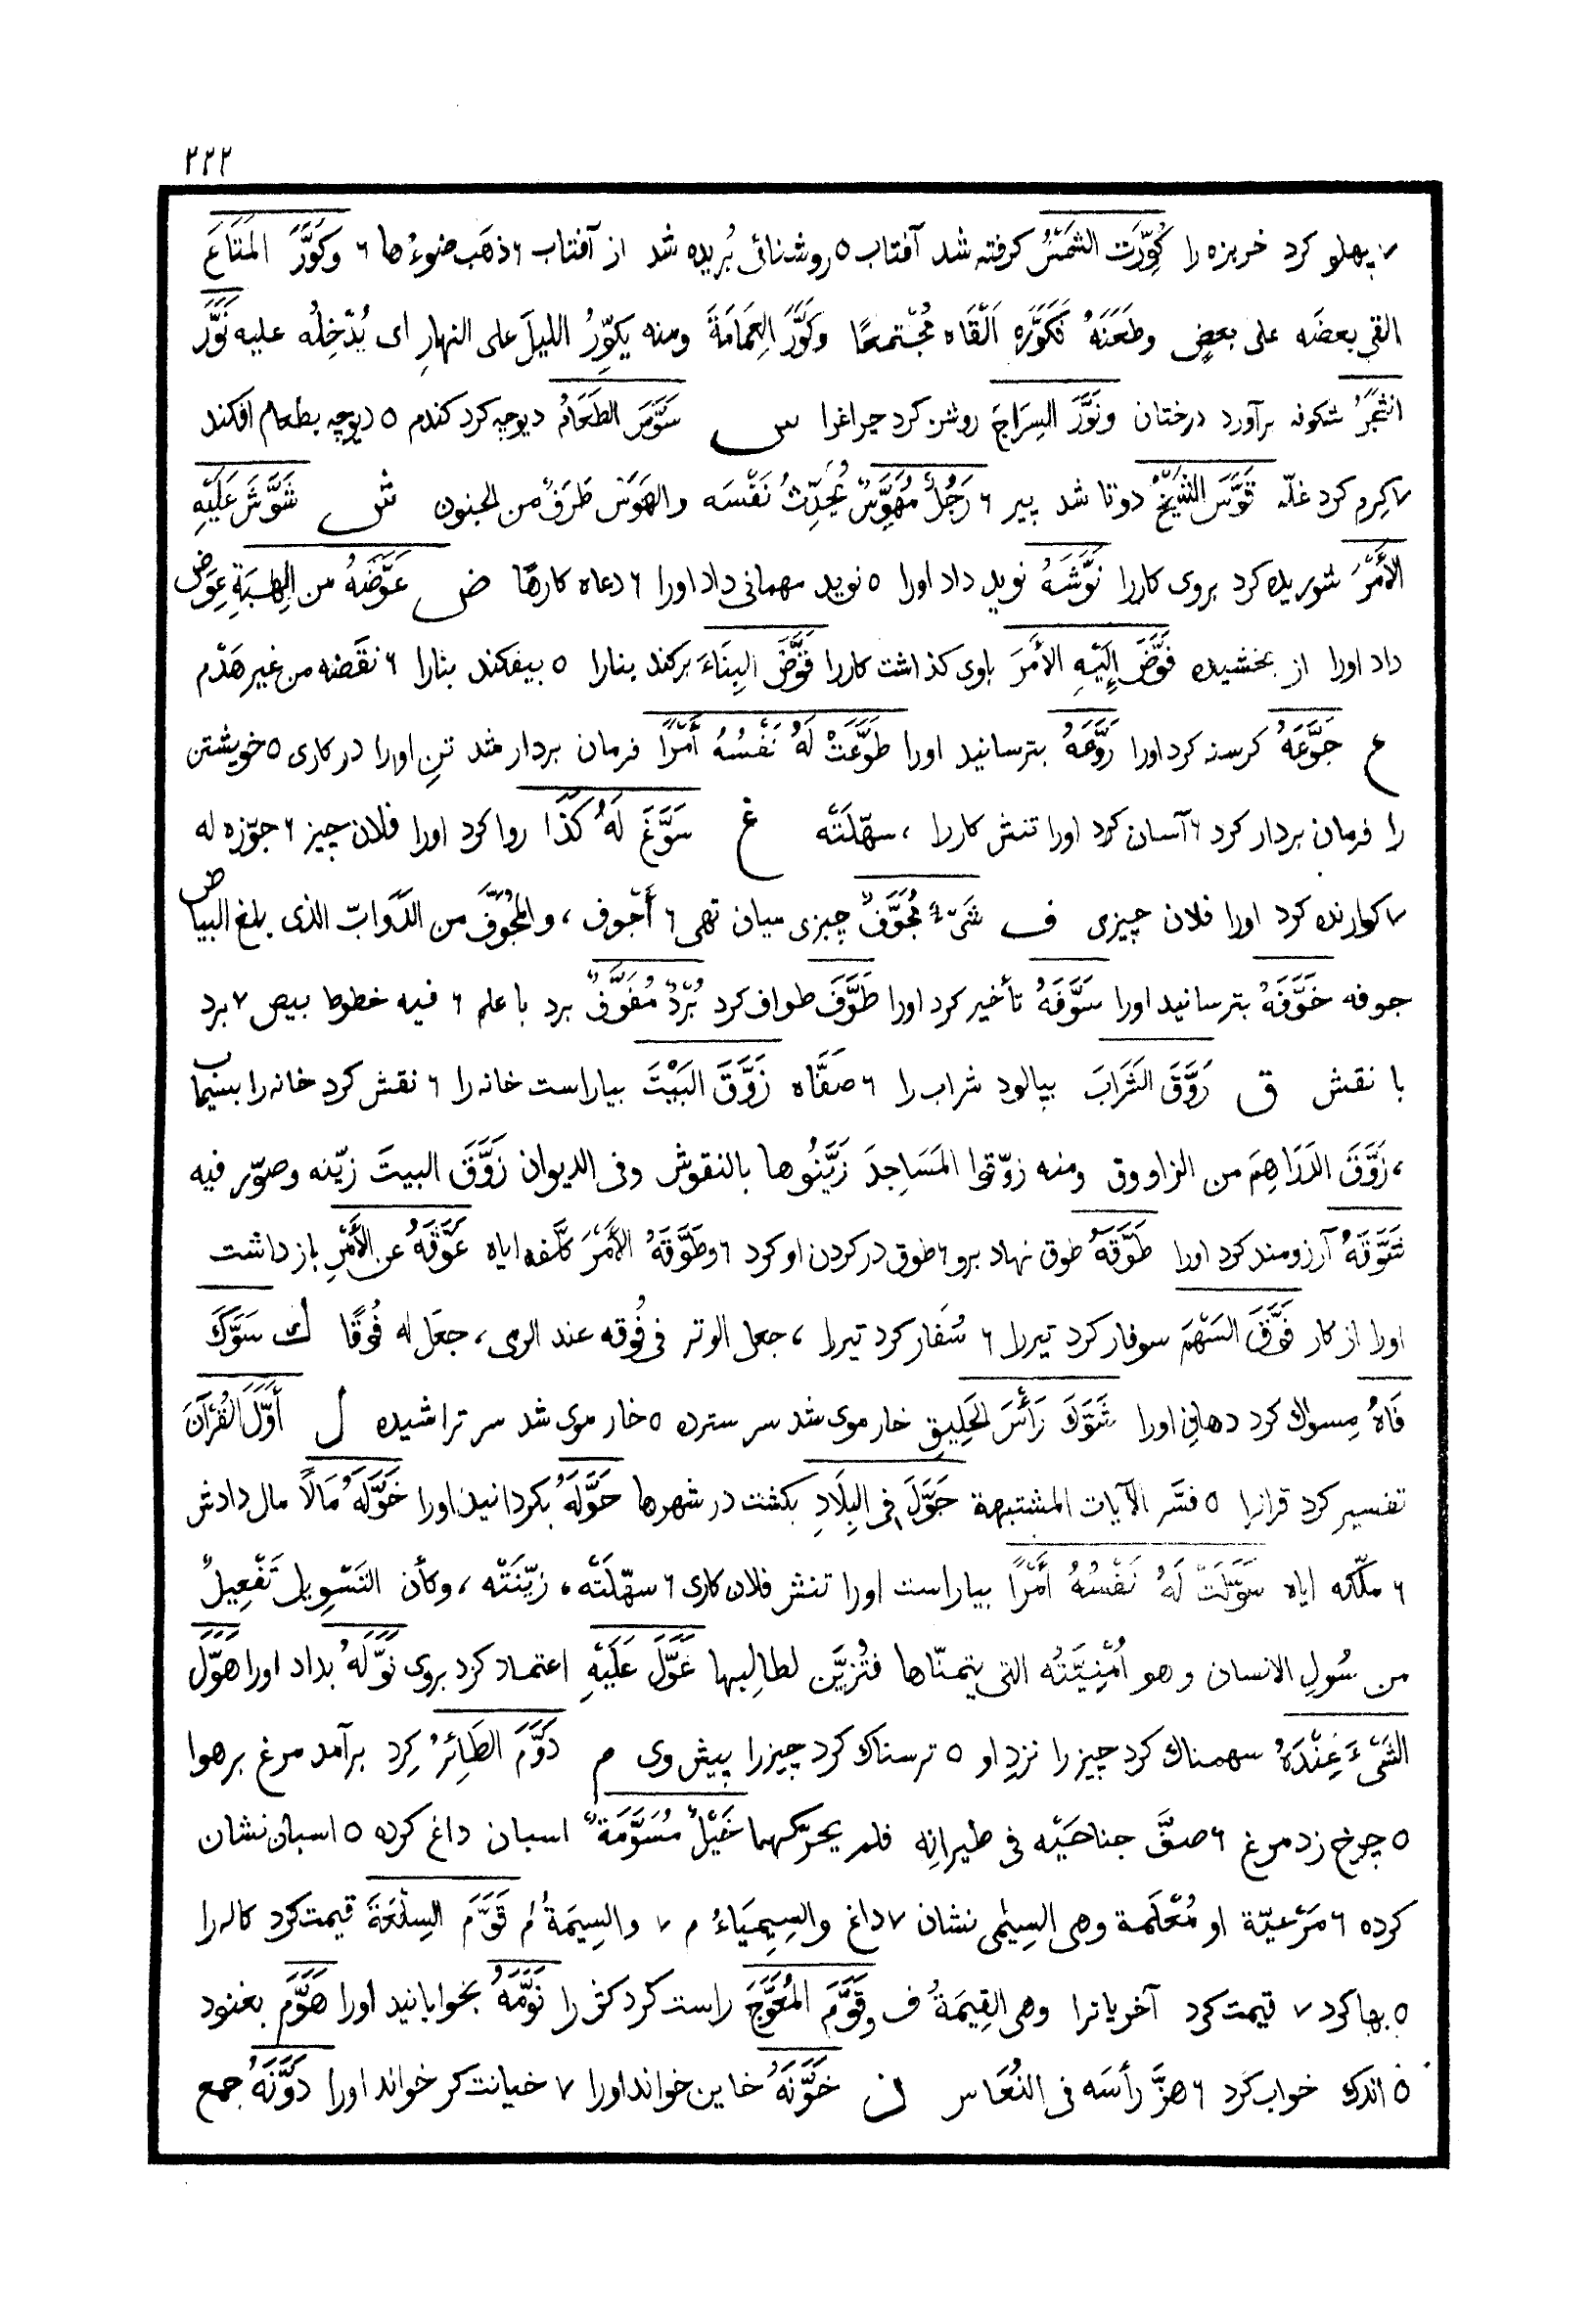 ۲۲۲
۷ پهلو كرد خربزه را كُوِّرَت الشَمْسُ كرفته شد آفتاب ٥ روشنائى بُريده شد از آفتاب ۶ ذهَب ضوءُها ۶ وكَوَّرَ المَتَاعَ
القى بعضَه على بعضٍ وطَعَنَهُ فَكَوَّرَه اَلْقَاه مُجْتمعًا وكَوَّرَ العِمَامَةَ ومنه يكوِّرُ الليلَ على النهارِ اى يُدْخِلُه عليه نَوَّرَ
الشجَرُ شكوفه برآورد درختان ونَوَّرَ السِرَاجَ روشن كرد چراغرا س سَوَّسَ الطَعَامُ ديوچه كرد كندم ٥ ديوچه بطعام افكند
۷ كرم كرد غلّه قَوَّسَ الشَيْخُ دوتا شد پير ۶ رَجُلٌ مُهَوَّسٌ يُحَدِّثُ نَفْسَه والهَوَسُ طَرَفٌ من الجنون ش شَوَّشَ عَلَيْهِ
الأَمْرَ شوريده كرد بروى كاررا نَوَّشَهُ نويد داد اورا ٥ نويد مهمانى داد اورا ۶ دعاه كارها ض عَوَّضَهُ من الهِبَةِ عِوَض
داد اورا از بخشيده فَوَّضَ إِلَيْهِ الأَمْرَ باوى كذاشت كاررا قَوَّضَ البِنَاءَ بركند بنارا ٥ بيفكند بنارا ۶ نقَضه من غيرِ هَدْم
ع جَوَّعَهُ كرسنه كرد اورا رَوَّعَهُ بترسانيد اورا طَوَّعَتْ لَهُ نَفْسُهُ أَمْرًا فرمان بردار شد تنِ اورا در كارى ٥ خويشتن
را فرمان بردار كرد ۶ آسان كرد اورا تنش كاررا ، سهّلَتْه غ سَوَّغَ لَهُ كَذَا روا كرد اورا فلان چيز ۶ جوّزه له
۷ كوارنده كرد اورا فلان چيزى ف شَىْءٌ مُجَوَّفٌ چيزى ميان تهى ۶ أَجْوف ، والمُجَوَّف من الدَوَابّ الذى يلغ البياض
جوفه خَوَّفَهُ بترسانيد اورا سَوَّفَهُ تأخير كرد اورا طَوَّفَ طواف كرد بُرْدٌ مُفَوَّفٌ برد با علم ۶ فيه خطوط بيص ۷ برد
با نقش ق رَوَّقَ الشَرَابَ بپالود شراب را ۶ صفّاه زَوَّقَ البَيْتَ بياراست خانه را ۶ نقش كرد خانه را بسيماب
، زَوَّقَ الدَرَاهِمَ من الزاووق ومنه زوّقوا المَسَاجِدَ زَيَّنُوها بالنقوش وفى الديوان زَوَّقَ البيتَ زيّنه وصوّر فيه
شَوَّقَهُ آرزومند كرد اورا طَوَّقَهُ طوق نهاد برو ۶ طوق در كردن او كرد ۶ وطَوَّقَهُ الأَمْرَ كلَّفه اياه عَوَّقَهُ عن الأَمْرِ باز داشت
اورا از كار فَوَّقَ السَهْمَ سوفار كرد تيررا ۶ سُفار كرد تيررا ، جعل الوتر فى فُوقه عند الرمى ، جعَل له فُوقًا ك سَوَّكَ
فَاهُ مِسواك كرد دهانِ اورا شَوَّكَ رَأْسَ الحَلِيقِ خار موى شد سر سترده ٥ خار موى شد سر تراشيده ل أَوَّلَ القُرْآنَ
تفسير كرد قرانرا ٥ فسَّر الآيات المشتبهة جَوَّلَ فِى البِلَادِ بكشت در شهرها حَوَّلَهُ بكردانيد اورا خَوَّلَهُ مَالًا مال دادش
۶ ملّكه اياه سَوَّلَتْ لَهُ نَفْسُهُ أَمْرًا بياراست اورا تنش فلان كارى ۶ سهّلَتْه ، زيّنَتْه ، وكأن التَسْوِيل تَفْعِيلٌ
من سُولِ الانسان وهو اُمْنِيَّتُه التى يتمنّاها فتُزيَّن لطالِبها عَوَّلَ عَلَيْهِ اعتماد كرد بروى نَوَّلَهُ بداد اورا هَوَّلَ
الشَىْءَ عِنْدَهُ سهمناك كرد چيز را نزدِ او ٥ ترسناك كرد چيزرا پيش وى م دَوَّمَ الطَائِرُ كِرد برآمد مرغ بر هوا
٥ چرخ زد مرغ ۶ صفَّ جناحَيْه فى طيرانِه فلم يحرّكهما خَيْلٌ مُسَوَّمَةٌ اسبان داغ كرده ٥ اسبان نشان
كرده ۶ مَرْعيّة او مُعْلَمة وهى السِيمَى نشان ۷ داغ والسِيمِيَاءُ م ۷ والسِيمَةُ لم قَوَّمَ السِلْعَةَ قيمت كرد كاله را
٥ بها كرد ۷ قيمت كرد آخريانرا وهى القِيمَةُ ف وقَوَّمَ المُعَوَّجَ راست كرد كژ را نَوَّمَهُ بخوابانيد اورا هَوَّمَ بغنود
٥ اندك خواب كرد ۶ هزَّ رأسَه فى النُعَاس ن خَوَّنَهُ خاين خواند اورا ۷ خيانت كر خواند اورا دَوَّنَهُ جمع